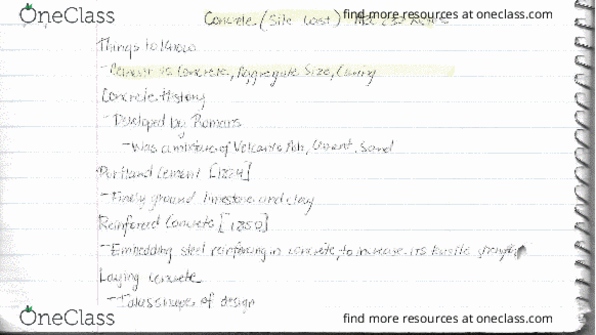 OneClass
find more resources at oneclass.com
Concrete (Site Cast)
Things to Know
- Cement vs Concrete, Aggregate Size, Curing
Concrete History
- Developed by Romans
- Was a mixture of Volcanic Ash, Cement, Sand
Portland Cement [1824]
- Finely ground limestone and clay
Reinforced Concrete [1850]
- Embedding steel reinforcing in concrete, to increase its tensile strength
Laying concrete
- Takes shapes of design
OneClass
find more resources at oneclass.com